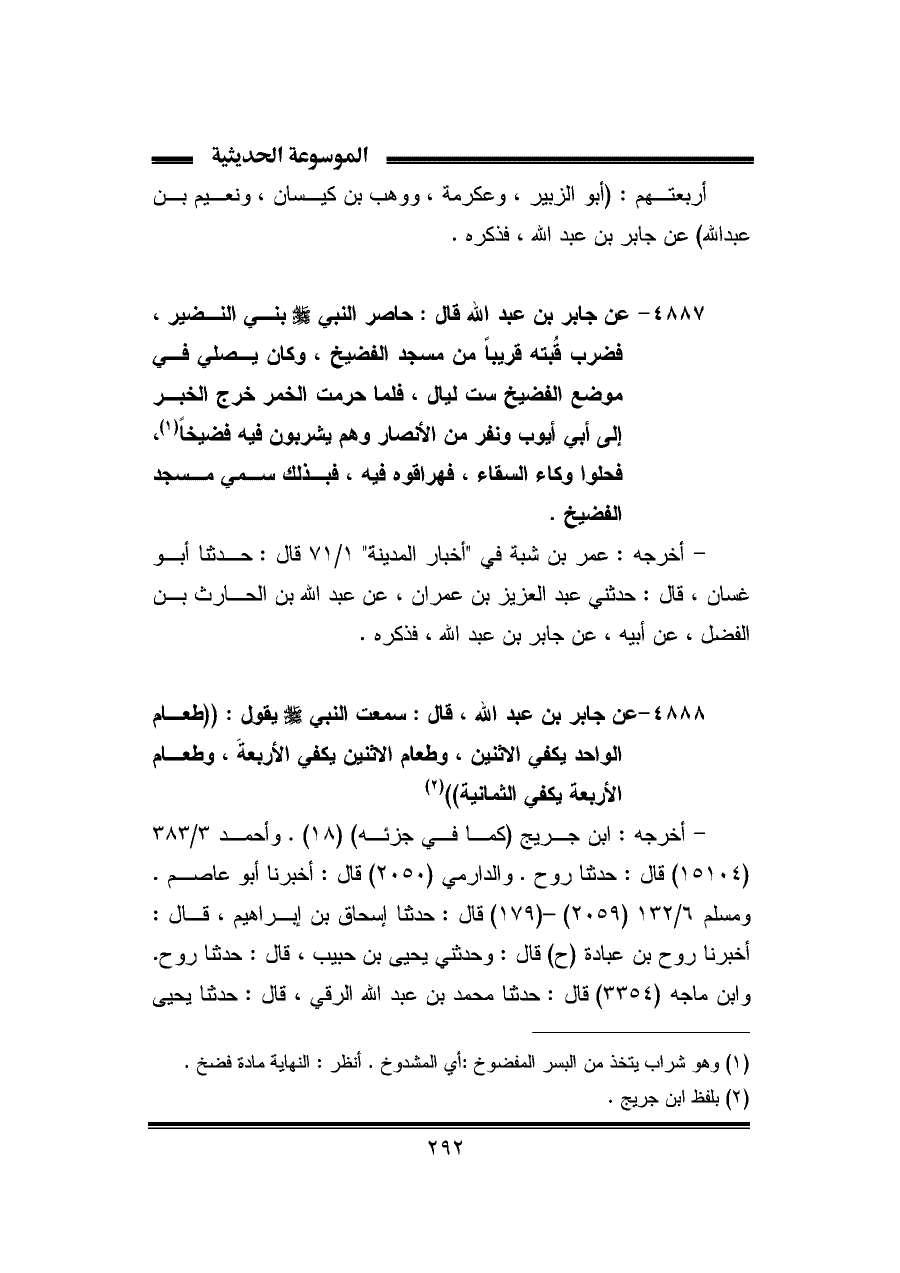 الموسوعة الحديثية
أربعتهم : (أبو الزبير ، وعكرمة ، ووهب بن كيسان ، ونعيم بن
عبدالله) عن جابر بن عبد الله ، فذكره .
٤٨٨٧- عن جابر بن عبد الله قال : حاصر النبي ﷺ بني النضير ،
فضرب قُبته قريباً من مسجد الفضيخ ، وكان يصلي في
موضع الفضيخ ست ليال ، فلما حرمت الخمر خرج الخبر
إلى أبي أيوب ونفر من الأنصار وهم يشربون فيه فضيخاً(١)،
فحلوا وكاء السقاء ، فهراقوه فيه ، فبذلك سمي مسجد
الفضيخ .
- أخرجه : عمر بن شبة في "أخبار المدينة" ٧١/١ قال : حدثنا أبو
غسان ، قال : حدثني عبد العزيز بن عمران ، عن عبد الله بن الحارث بن
الفضل ، عن أبيه ، عن جابر بن عبد الله ، فذكره .
٤٨٨٨-عن جابر بن عبد الله ، قال : سمعت النبي ﷺ يقول : ((طعام
الواحد يكفي الاثنين ، وطعام الاثنين يكفي الأربعةَ ، وطعام
الأربعة يكفي الثمانية))(٢)
- أخرجه : ابن جريج (كما في جزئه) (١٨) . وأحمد ٣٨٣/٣
(١٥١٠٤) قال : حدثنا روح . والدارمي (٢٠٥٠) قال : أخبرنا أبو عاصم .
ومسلم ١٣٢/٦ (٢٠٥٩) -(١٧٩) قال : حدثنا إسحاق بن إبراهيم ، قال :
أخبرنا روح بن عبادة (ح) قال : وحدثني يحيى بن حبيب ، قال : حدثنا روح.
وابن ماجه (٣٣٥٤) قال : حدثنا محمد بن عبد الله الرقي ، قال : حدثنا يحيى
(١) وهو شراب يتخذ من البسر المفضوخ :أي المشدوخ . أنظر : النهاية مادة فضخ .
(٢) بلفظ ابن جريج .
٢٩٢